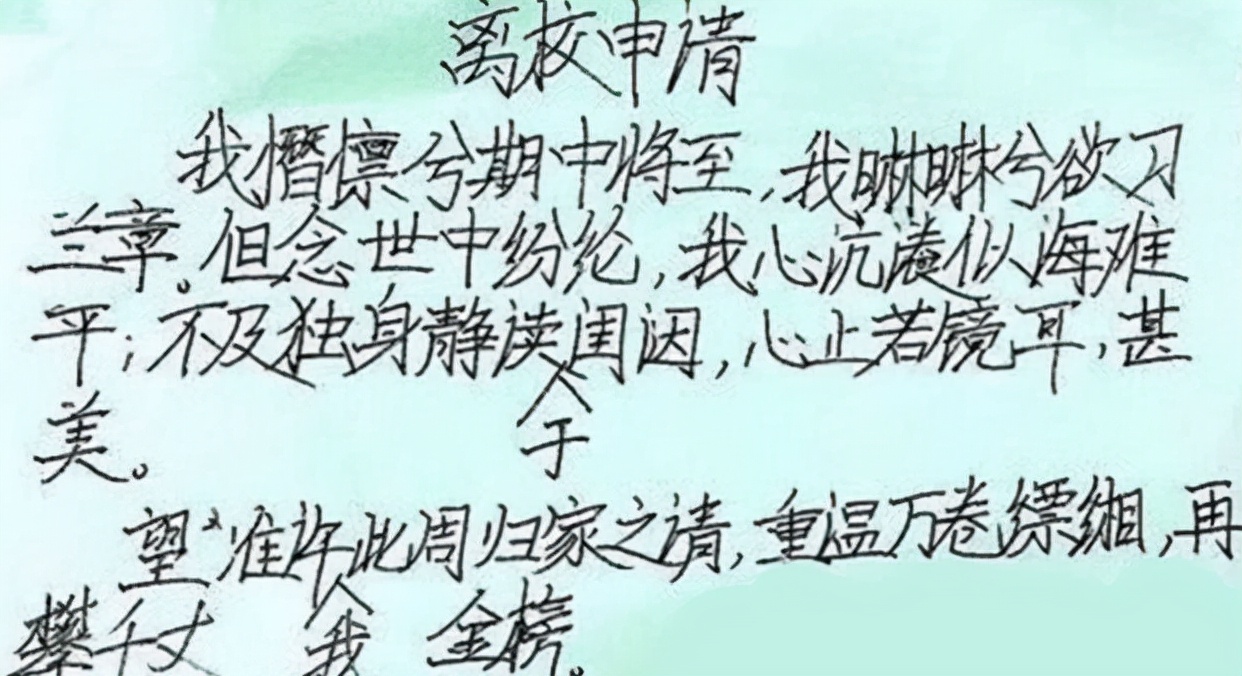 离校申请
我憯懔兮期中将至,我啉啉兮欲习
兰章。但念世中纷纶,我心沆溘似海难
平;不及独身静读于闺闼,心止若镜耳,甚
美。
望准许我此周归家之请,重温万卷缥缃,再
攀千丈金榜。